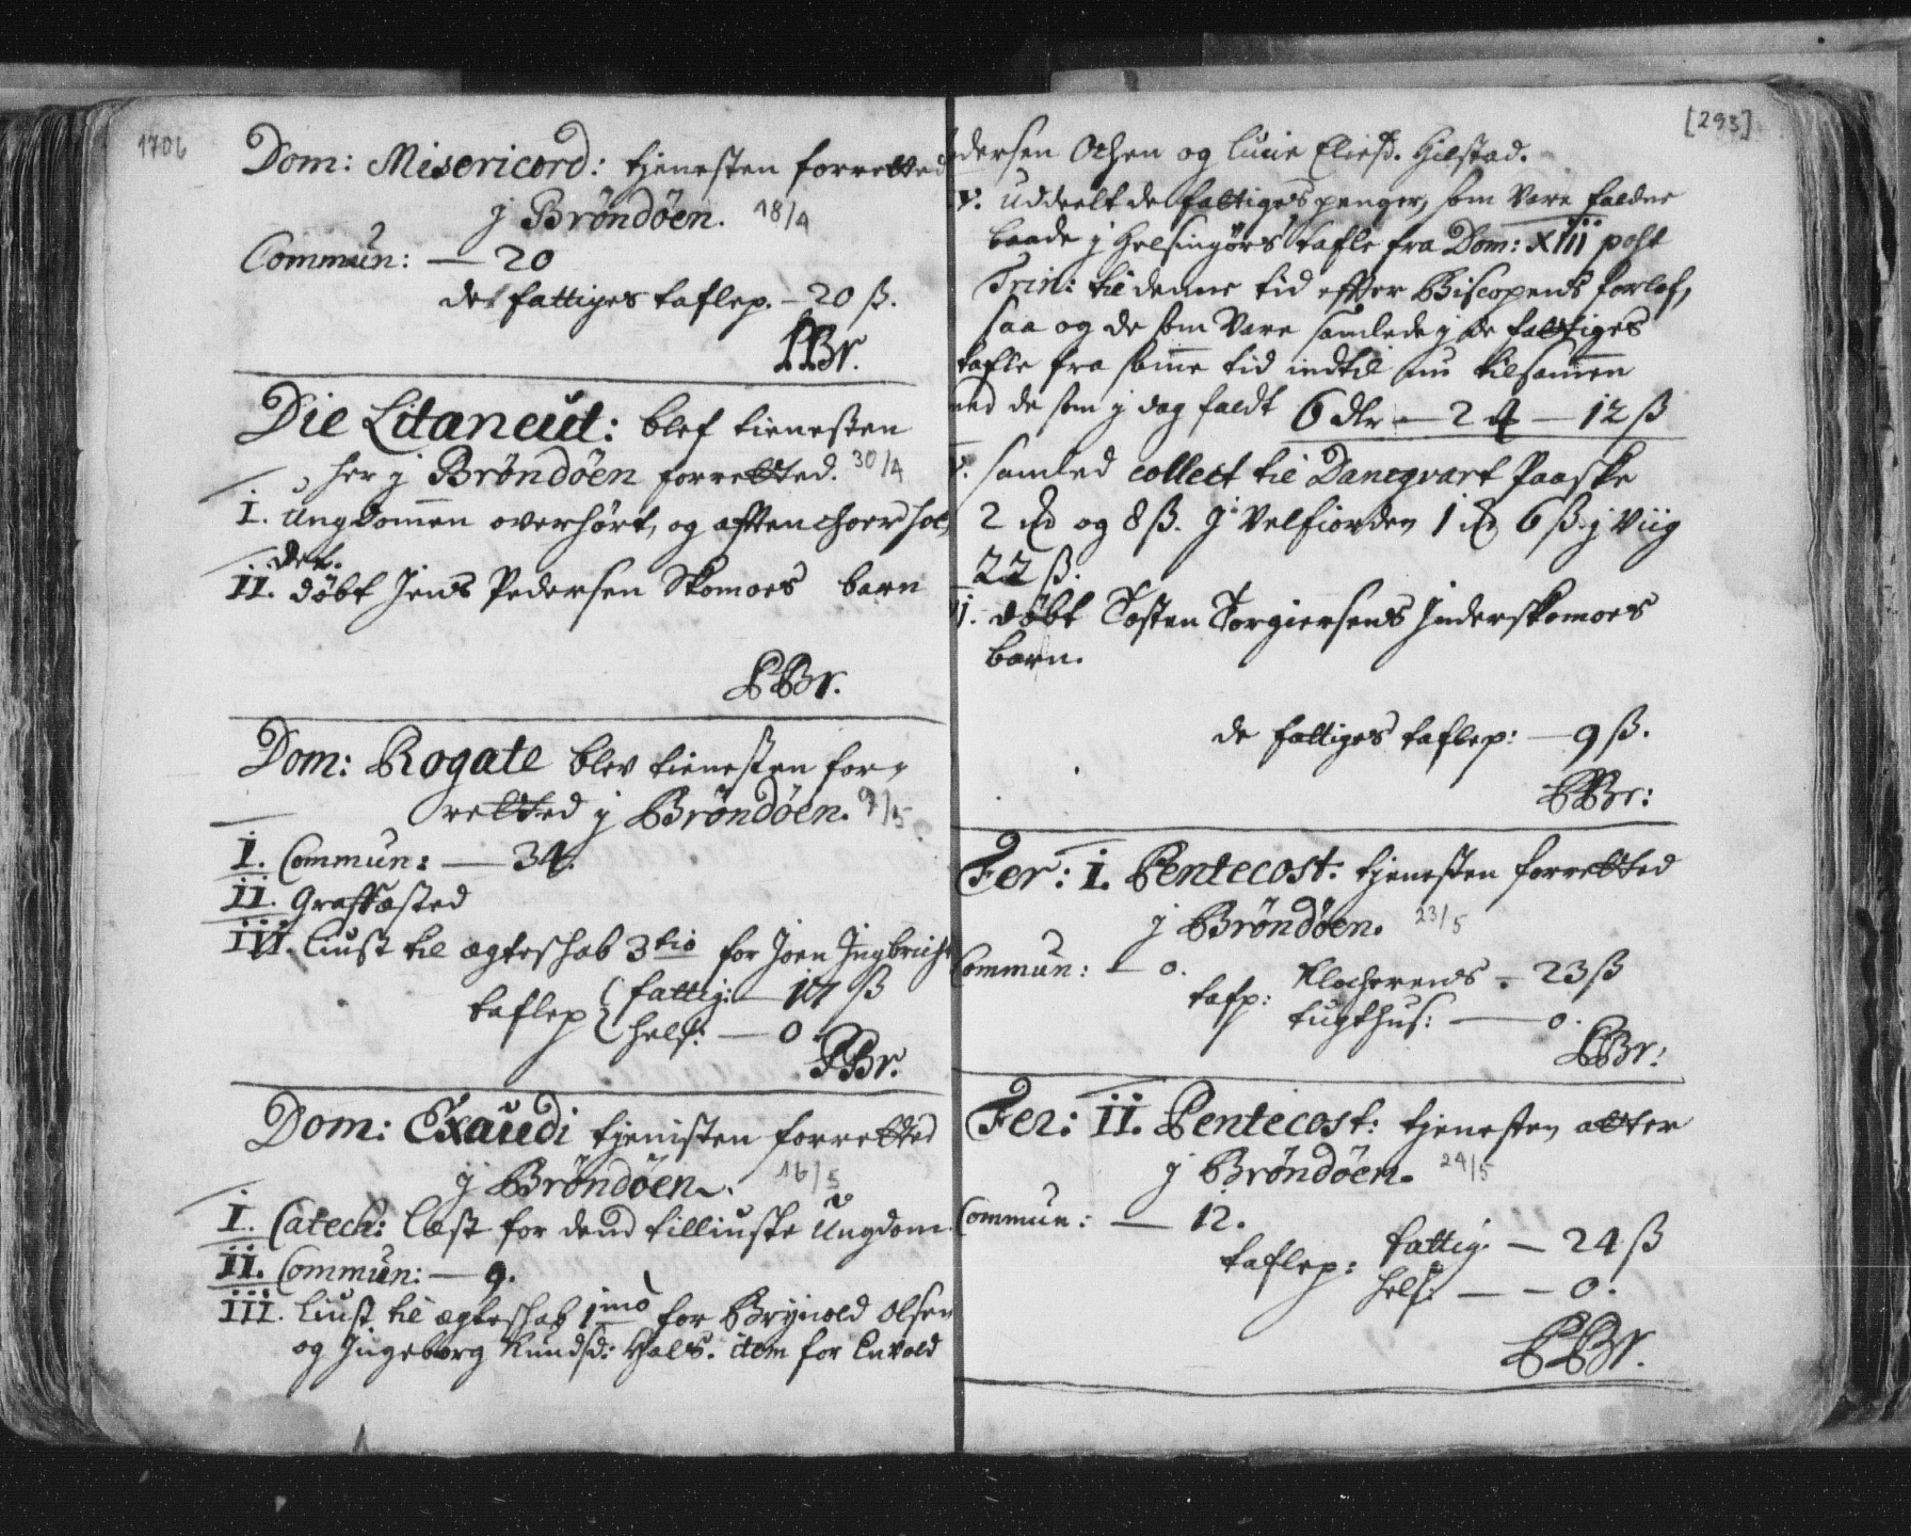 1706
Dom: Misericord: tjenesten forretted
j Bröndöen. 18/4
Commun: — 20
de fattiges taflep. – 20 ß.
PBr.
Die Litaneut: blef tienesten
her j Bröndöen forretted. 30/4
I. Ungdommen overhört, og afften choer hol,
det.
II. döbt Jens Pedersen Skomoes barn
PBr.
Dom: Rogate blev tienesten for,
retted j Bröndöen. 9/5
I. Commun: — 34.
II. Graffæsted
III. liust til ægteskab 3tio for Joen Ingbricht
taflep { fattig: — 17 ß
hels: — 0
PBr.
Dom: Exaudi tjenisten forretted
j Bröndöen. 16/5
I. Catech: læst for dend tilliuste Ungdom.
II. Commun: — 9.
III. liust til ægteskab 1mo for Brynold Olsen
og Ingeborg Knudsd: Hals. item for Envold
[293]
dersen Othen og lucie Eliesd. Hilstad.
v. uddeelt de fattiges penger, som vare faldne
baade j Helsingörs tafle fra Dom: XIII post
Trin: til denne tid effter Biscopens forlof,
saa og de som vare samlede j de fattiges
tafle fra samme tid indtil nu tilsammen
med de som j dag faldt 6 dlr — 2 — 12 ß
v. samled collect til Danqvart Paaske
2 og 8 ß. J Velfiorden 1 6 ß j Viig
22 ß.
vj. döbt Tosten Torgiersens Inderskomoes
barn.
de fattiges taflep: — 9 ß.
PBr:
Fer: I. Pentecost: tjenesten forretted
j Bröndöen. 23/5
Commun: — 0.
tafp: Klocherens - 23 ß
tugthus: — 0.
PBr:
Fer: II. Pentecost: tjenesten atter
j Bröndöen. 24/5
Commun: — 12.
taflep: fattig. — 24 ß
hels: — – 0.
PBr.